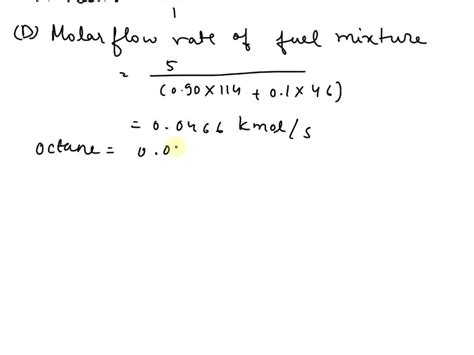 1
(D) Molar flow rate of fuel mixture
= 5 / (0.90×114 + 0.1×46)
= 0.0466 kmol/s
octane = 0.0